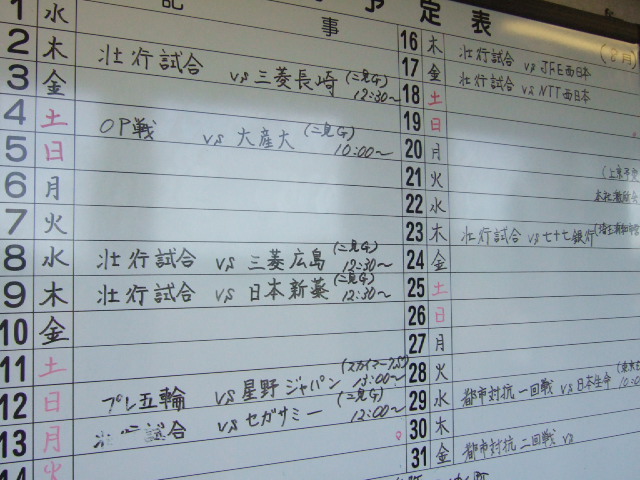 予定表
記事
(8月)
1 水
2 木 壮行試合 vs 三菱長崎 (二見G) 12:30~
3 金
4 土 OP戦 vs 大産大 (二見G) 10:00~
5 日
6 月
7 火
8 水 壮行試合 vs 三菱広島 (二見G) 12:30~
9 木 壮行試合 vs 日本新薬 (二見G) 12:30~
10 金
11 土
12 日 プレ五輪 vs 星野ジャパン 18:00~
13 月 試合 vs セガサミー (二見G) 12:00~
14 火
16 木 壮行試合 vs JFE西日本
17 金 壮行試合 vs NTT西日本
18 土
19 日
20 月
21 火
22 水
23 木 壮行試合 vs 七十七銀行
24 金
25 土
26 日
27 月
28 火
29 水 都市対抗 一回戦 vs 日本生命
30 木
31 金 都市対抗 二回戦 vs